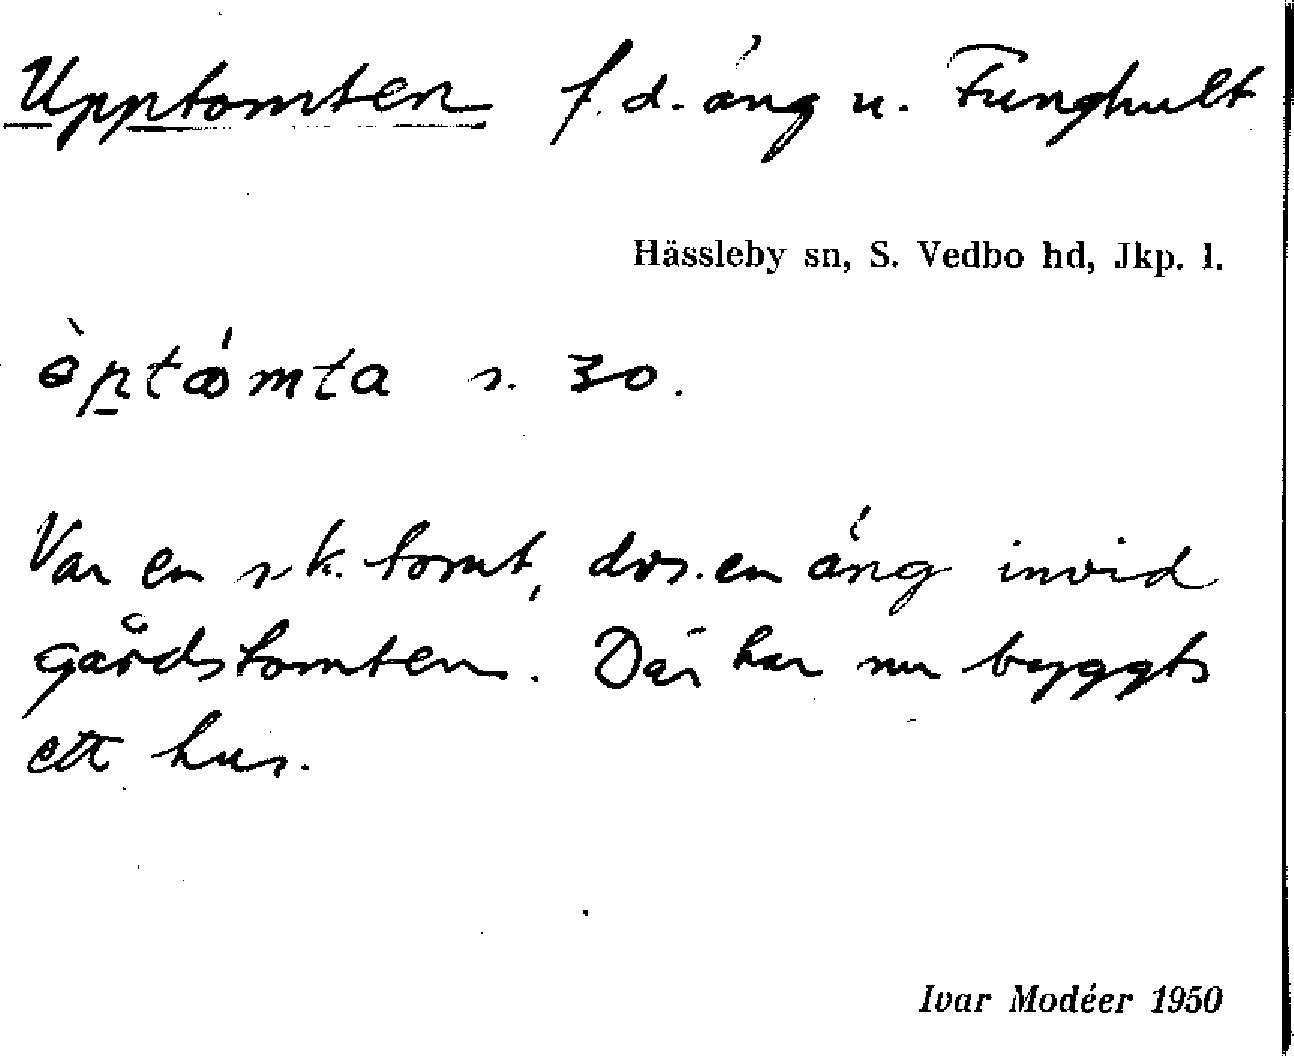 Upptomten f.d. äng u. Funghult
Hässleby sn, S. Vedbo hd, Jkp. l.
s. 30.
Var en s.k. tomt, dvs. en äng invid
gårdstomten. Där har nu byggts
ett hus.
Ivar Modéer 1950